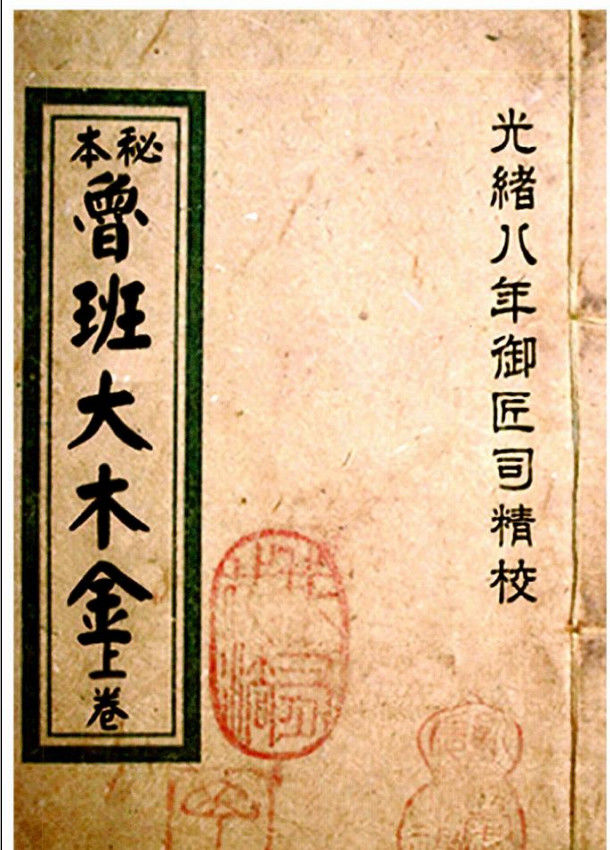 光緒八年御匠司精校
秘本
魯班大木金上卷